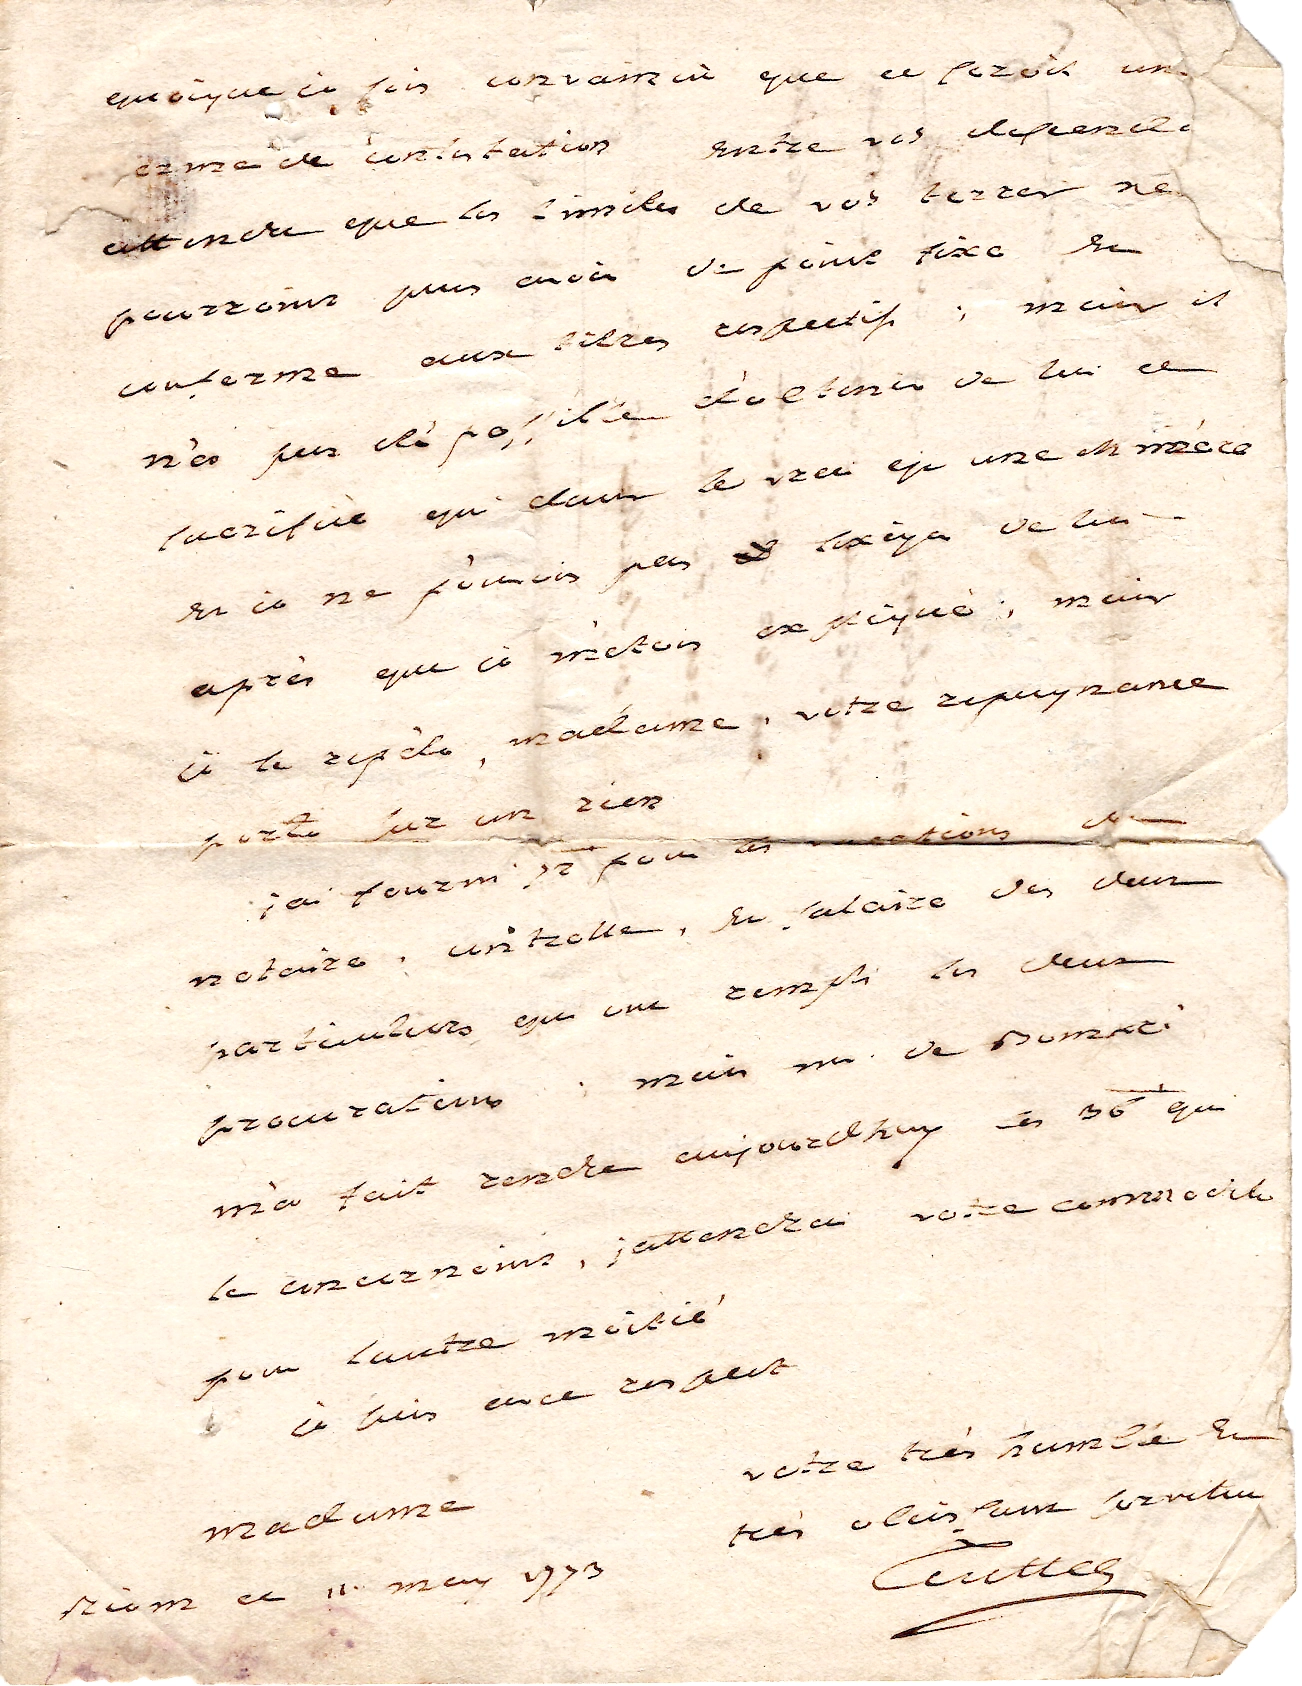 quoique je sois convaincu que ce seroit un
germe de contestation entre vos descenda
attendre que les limites de vos terres ne
pourroint plus avoir de point fixe et
conforme aux titres respectifs ; mais il
n'a pas eté possible d'obtenir de lui ce
sacrifice qui dans le vrai est une chimére
et je ne pouvois pas lexiger de lui
aprés que je m'etois expliqué ; mais
je le repéte, madame, votre repugnance
porte sur un rien
j'ai fourni pour les vacations du
notaire, controlle, et salaire des deux
particuliers qui ont rempli les deux
procurations ; mais mr. de
m'a fait rendre aujourdhuy les 36 qui
le concernoint, jattendrai votre commodité
pour lautre moitié
je suis avec respect
madame
votre trés humble et
trés obeissant serviteur
Riom ce 11. may 1773